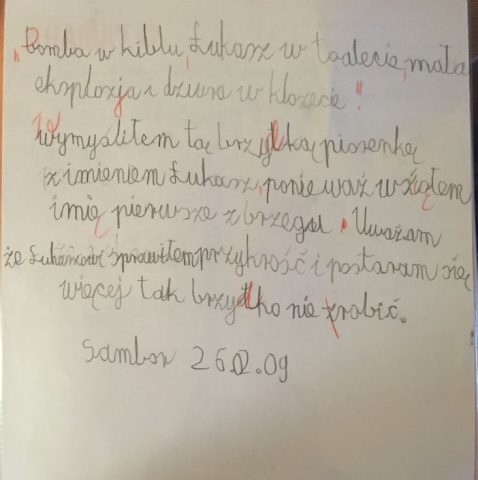 "Bomba w kiblu, Łukasz w toalecie, mała
eksplozja i dziura w klozecie"
Wymyśliłem tą brzydką piosenkę
z imieniem Łukasz, ponieważ wziąłem
imię pierwsze z brzegu. Uważam
że Łukaszowi sprawiłem przykrość i postaram się
więcej tak brzydko nie zrobić.
Sambor 26.02.09